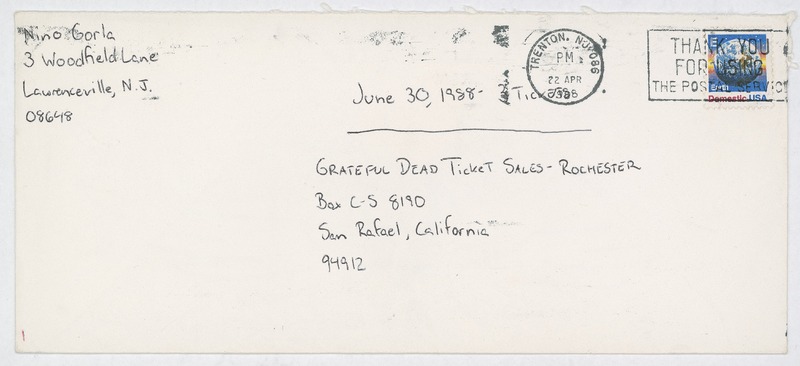 Nino Gorla
3 Woodfield Lane
Lawrenceville, N.J.
08648
TRENTON, NJ 086
PM
22 APR
1988
THANK YOU
FOR USING
THE POSTAL SERVICE
Domestic USA
June 30, 1988-
GRATEFUL DEAD TICKET SALES - ROCHESTER
Box C-S 8190
San Rafael, California
94912